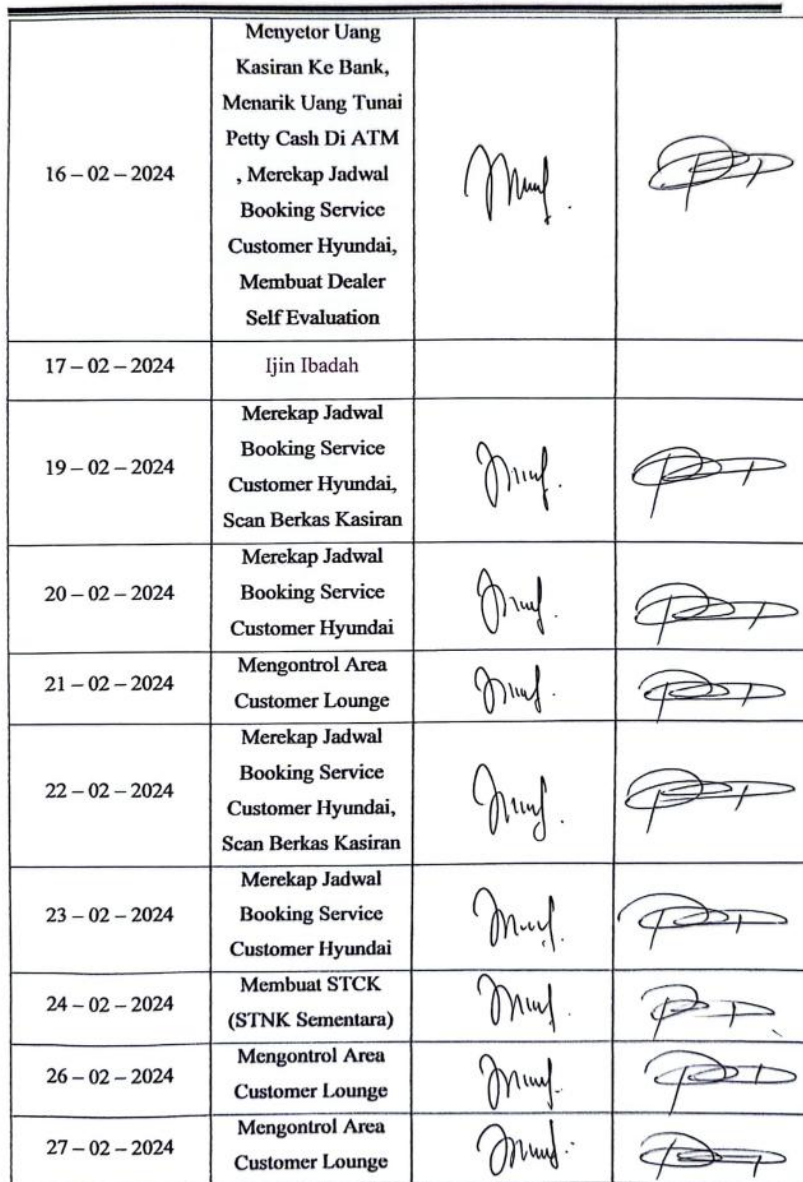 Menyetor Uang
Kasiran Ke Bank,
Menarik Uang Tunai
Petty Cash Di ATM
16 – 02 – 2024
, Merekap Jadwal
Booking Service
Customer Hyundai,
Membuat Dealer
Self Evaluation
17 – 02 – 2024
Ijin Ibadah
Merekap Jadwal
Booking Service
19 – 02 – 2024
Customer Hyundai,
Scan Berkas Kasiran
Merekap Jadwal
20 – 02 – 2024
Booking Service
Customer Hyundai
21 – 02 – 2024
Mengontrol Area
Customer Lounge
Merekap Jadwal
Booking Service
22 – 02 – 2024
Customer Hyundai,
Scan Berkas Kasiran
Merekap Jadwal
23 – 02 – 2024
Booking Service
Customer Hyundai
24 – 02 – 2024
Membuat STCK
(STNK Sementara)
26 – 02 – 2024
Mengontrol Area
Customer Lounge
27 – 02 – 2024
Mengontrol Area
Customer Lounge